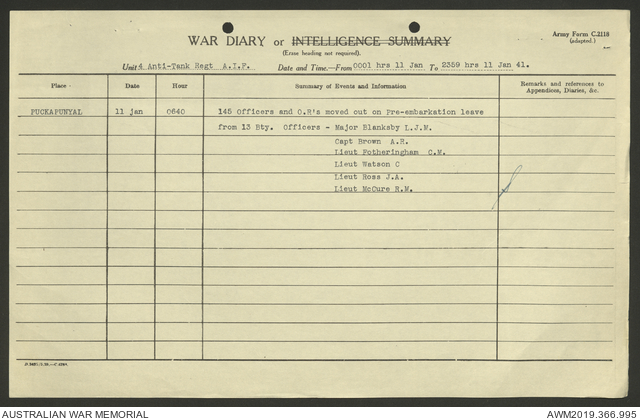 WAR DIARY or INTELLIGENCE SUMMARY
(Erase heading not required).
Army Form C.2118
(adapted.)
Unit 4 Anti-Tank Regt A.I.F. Date and Time.—From 0001 hrs 11 Jan To 2359 hrs 11 Jan 41.
Place Date Hour Summary of Events and Information Remarks and references to Appendices, Diaries, &c.
PUCKAPUNYAL 11 jan 0640 145 Officers and O.R's moved out on Pre-embarkation leave
from 13 Bty. Officers - Major Blanksby L.J.M.
Capt Brown A.R.
Lieut Fotheringham C.M.
Lieut Watson C
Lieut Ross J.A.
Lieut McCure R.M.
AUSTRALIAN WAR MEMORIAL AWM2019.366.995